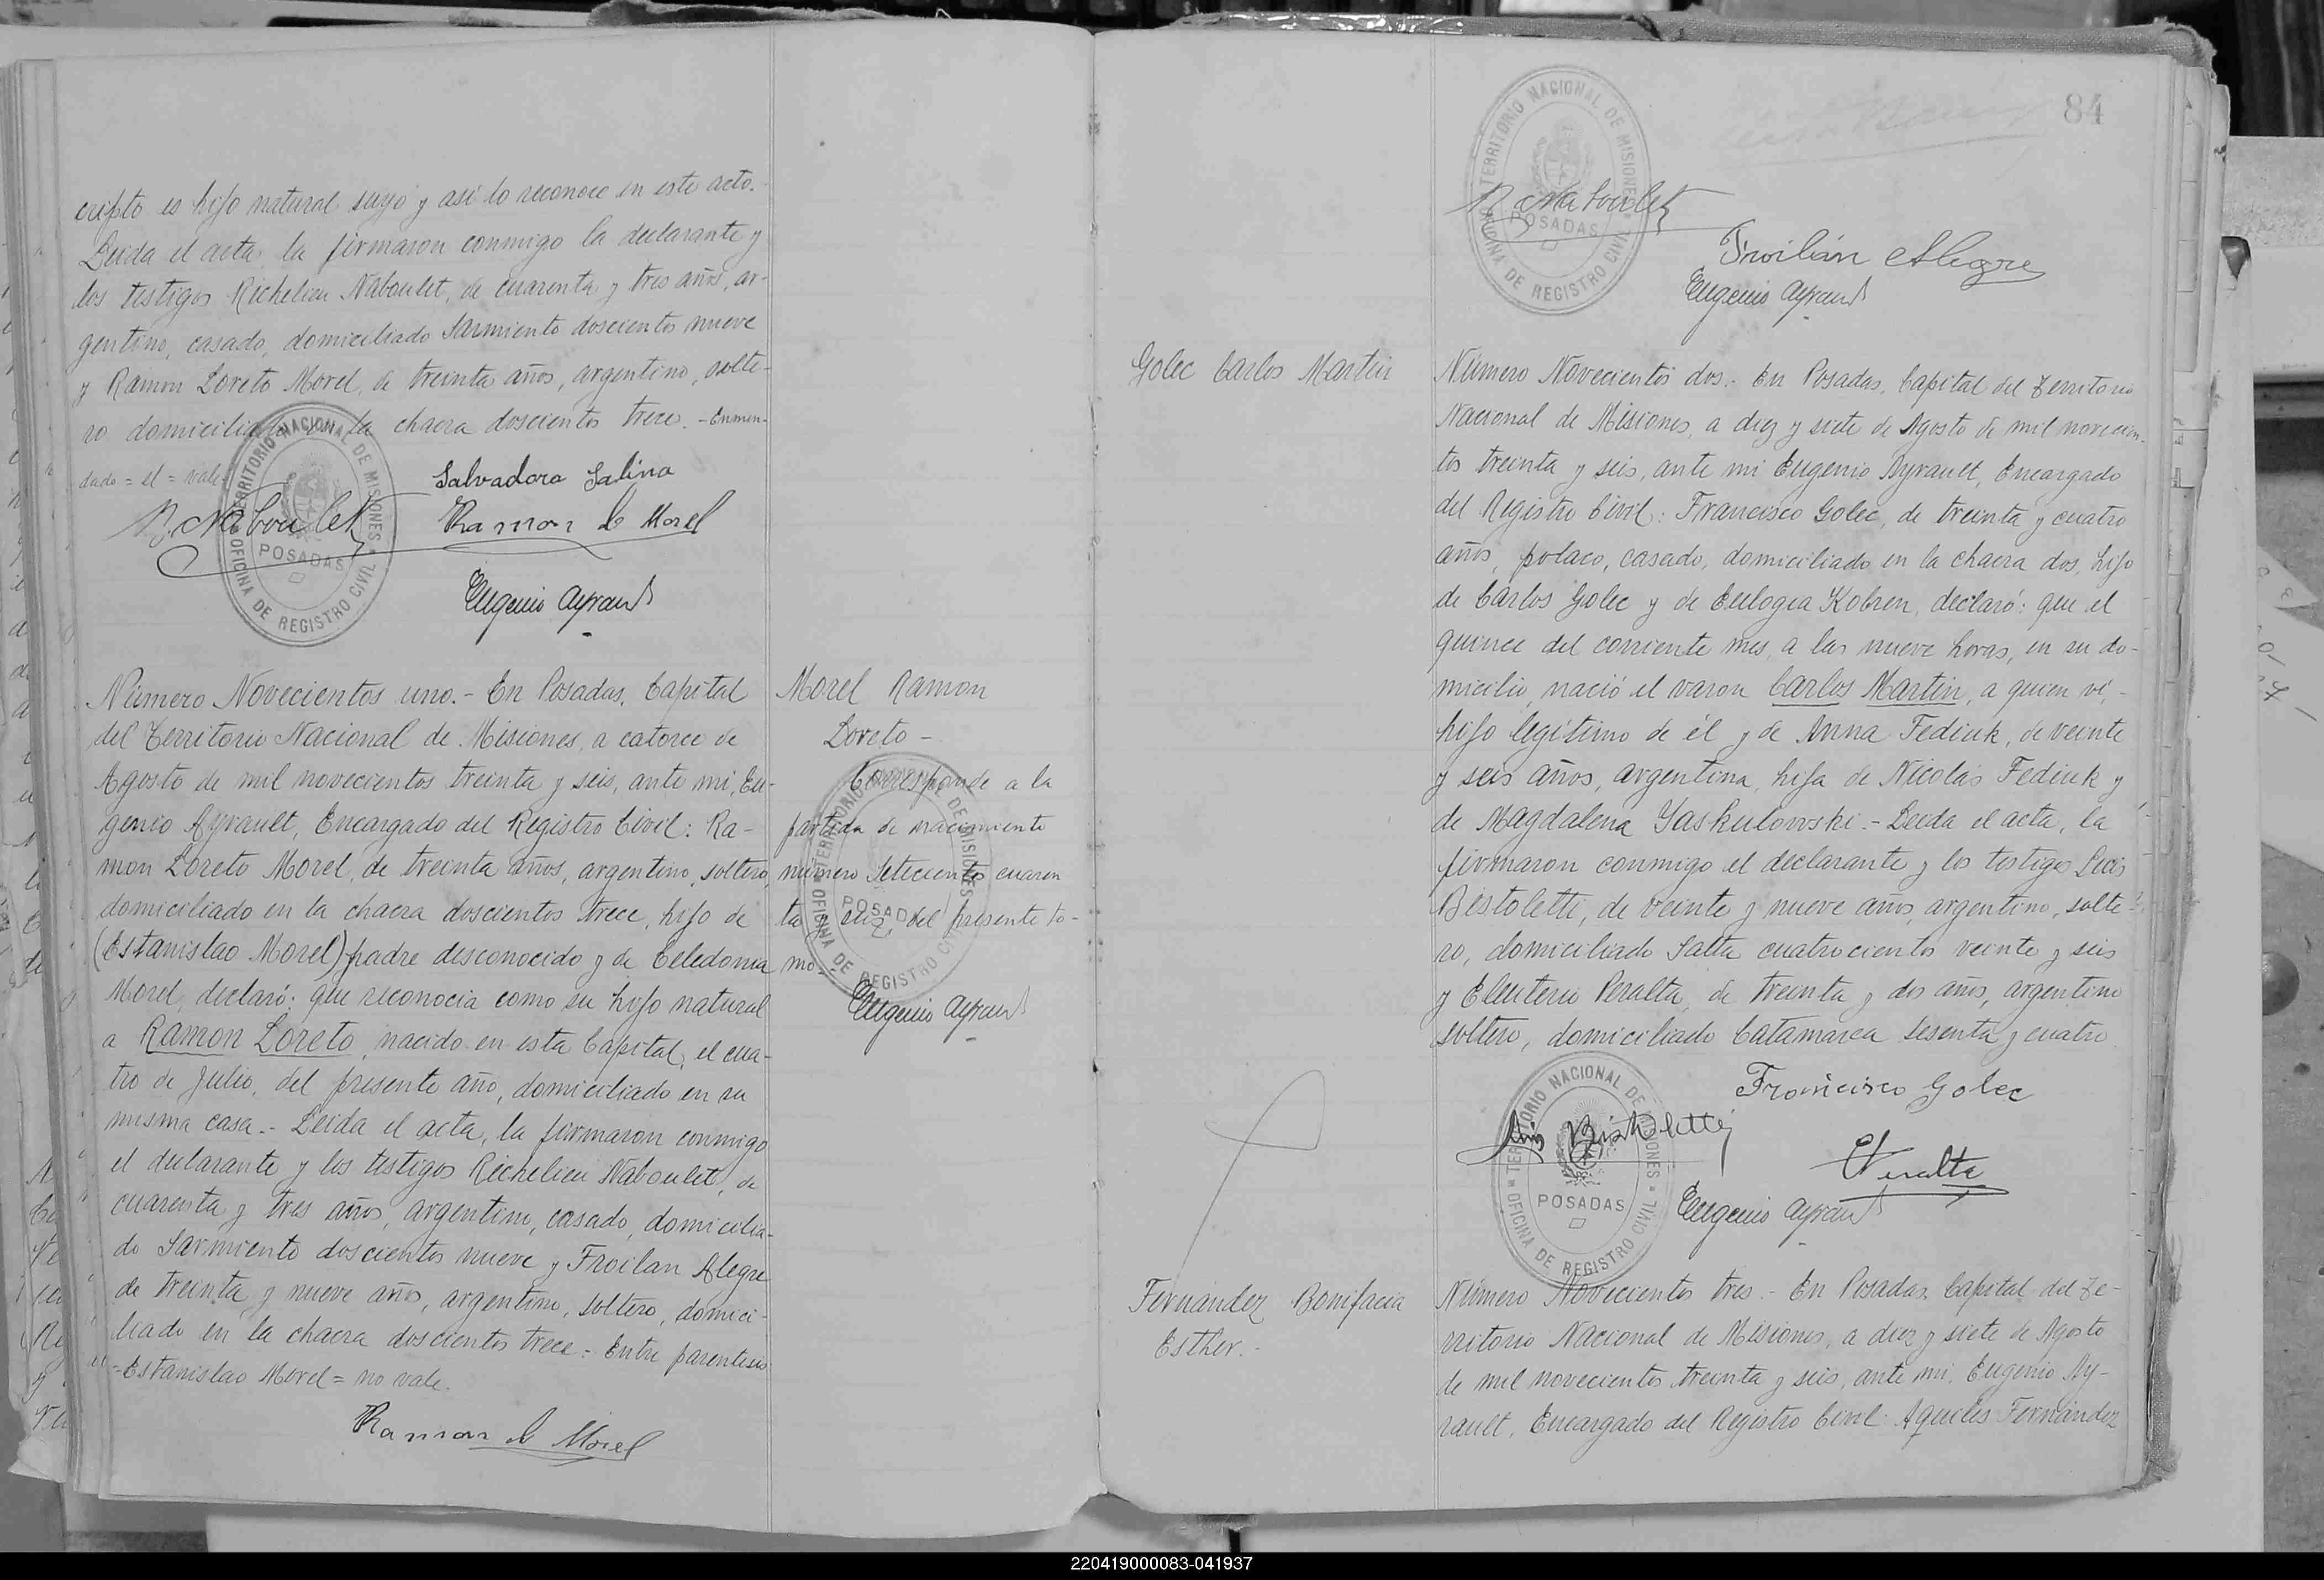 cripto es hijo natural suyo y asi lo reconoce en este acto.
Leida el acta, la firmaron conmigo la declarante y
los testigos Richelieu Naboulet, de cuarenta y tres años, ar-
gentino, casado, domiciliado Sarmiento doscientos nueve
y Ramon Loreto Morel, de treinta años, argentino, solte-
ro domiciliado en la chacra doscientos trece. - Enmen-
dado = el = vale
Salvadora Salina
R. Naboulet
Ramon L Morel
TERRITORIO NACIONAL DE MISIONES
POSADAS
OFICINA DE REGISTRO CIVIL
Eugenio Ayrault
Número Novecientos uno.- En Posadas, Capital
del Territorio Nacional de Misiones, a catorce de
Agosto de mil novecientos treinta y seis, ante mi, Eu-
genio Ayrault, Encargado del Registro Civil: Ra-
mon Loreto Morel, de treinta años, argentino, soltero,
domiciliado en la chacra doscientos trece, hijo de
(Estanislao Morel) padre desconocido y de Celedonia
Morel, declaró: que reconocia como su hijo natural
a Ramon Loreto, nacido en esta Capital, el cua-
tro de Julio, del presente año, domiciliado en su
misma casa.- Leida el acta, la firmaron conmigo
el declarante y los testigos Richelieu Naboulet, de
cuarenta y tres años, argentino, casado, domicilia-
do Sarmiento doscientos nueve y Froilan Alegre
de treinta y nueve años, argentino, soltero, domici-
liado en la chacra doscientos trece = Entre parentesis
= Estanislao Morel = no vale.
Ramon L Morel
Morel Ramon
Loreto -
Corresponde a la
partida de nacimiento
número setecientos cuaren
ta y seis, del presente to-
mo.-
TERRITORIO NACIONAL DE MISIONES
POSADAS
OFICINA DE REGISTRO CIVIL
Eugenio Ayrault
84
TERRITORIO NACIONAL DE MISIONES
POSADAS
OFICINA DE REGISTRO CIVIL
R. Naboulet
Froilán Alegre
Eugenio Ayrault
Golec Carlos Martin
Número Novecientos dos.- En Posadas, Capital del Territorio
Nacional de Misiones, a diez y siete de Agosto de mil novecien-
tos treinta y seis, ante mi Eugenio Ayrault, Encargado
del Registro Civil: Francisco Golec, de treinta y cuatro
años, polaco, casado, domiciliado en la chacra dos, hijo
de Carlos Golec y de Eulogia Kobren, declaró: que el
quince del corriente mes, a las nueve horas, en su do-
micilio, nació el varon Carlos Martin, a quien ví,-
hijo legitimo de él y de Anna Fediuk, de veinte
y seis años, argentina, hija de Nicolás Fediuk y
de Magdalena Yaskulowski.- Leida el acta, la
firmaron conmigo el declarante y los testigos Luis
Bistoletti, de veinte y nueve años, argentino, solte-
ro, domiciliado Salta cuatrocientos veinte y seis
y Eleuterio Peralta, de treinta y dos años, argentino
soltero, domiciliado Catamarca sesenta y cuatro
Francisco Golec
Luis Bistoletti
EPeralta
TERRITORIO NACIONAL DE MISIONES
POSADAS
OFICINA DE REGISTRO CIVIL
Eugenio Ayrault
Fernández Bonifacia
Esther.-
Número Novecientos tres.- En Posadas, Capital del Te-
rritorio Nacional de Misiones, a diez y siete de Agosto
de mil novecientos treinta y seis, ante mi, Eugenio Ay-
rault, Encargado del Registro Civil: Aquiles Fernández
220419000083-041937